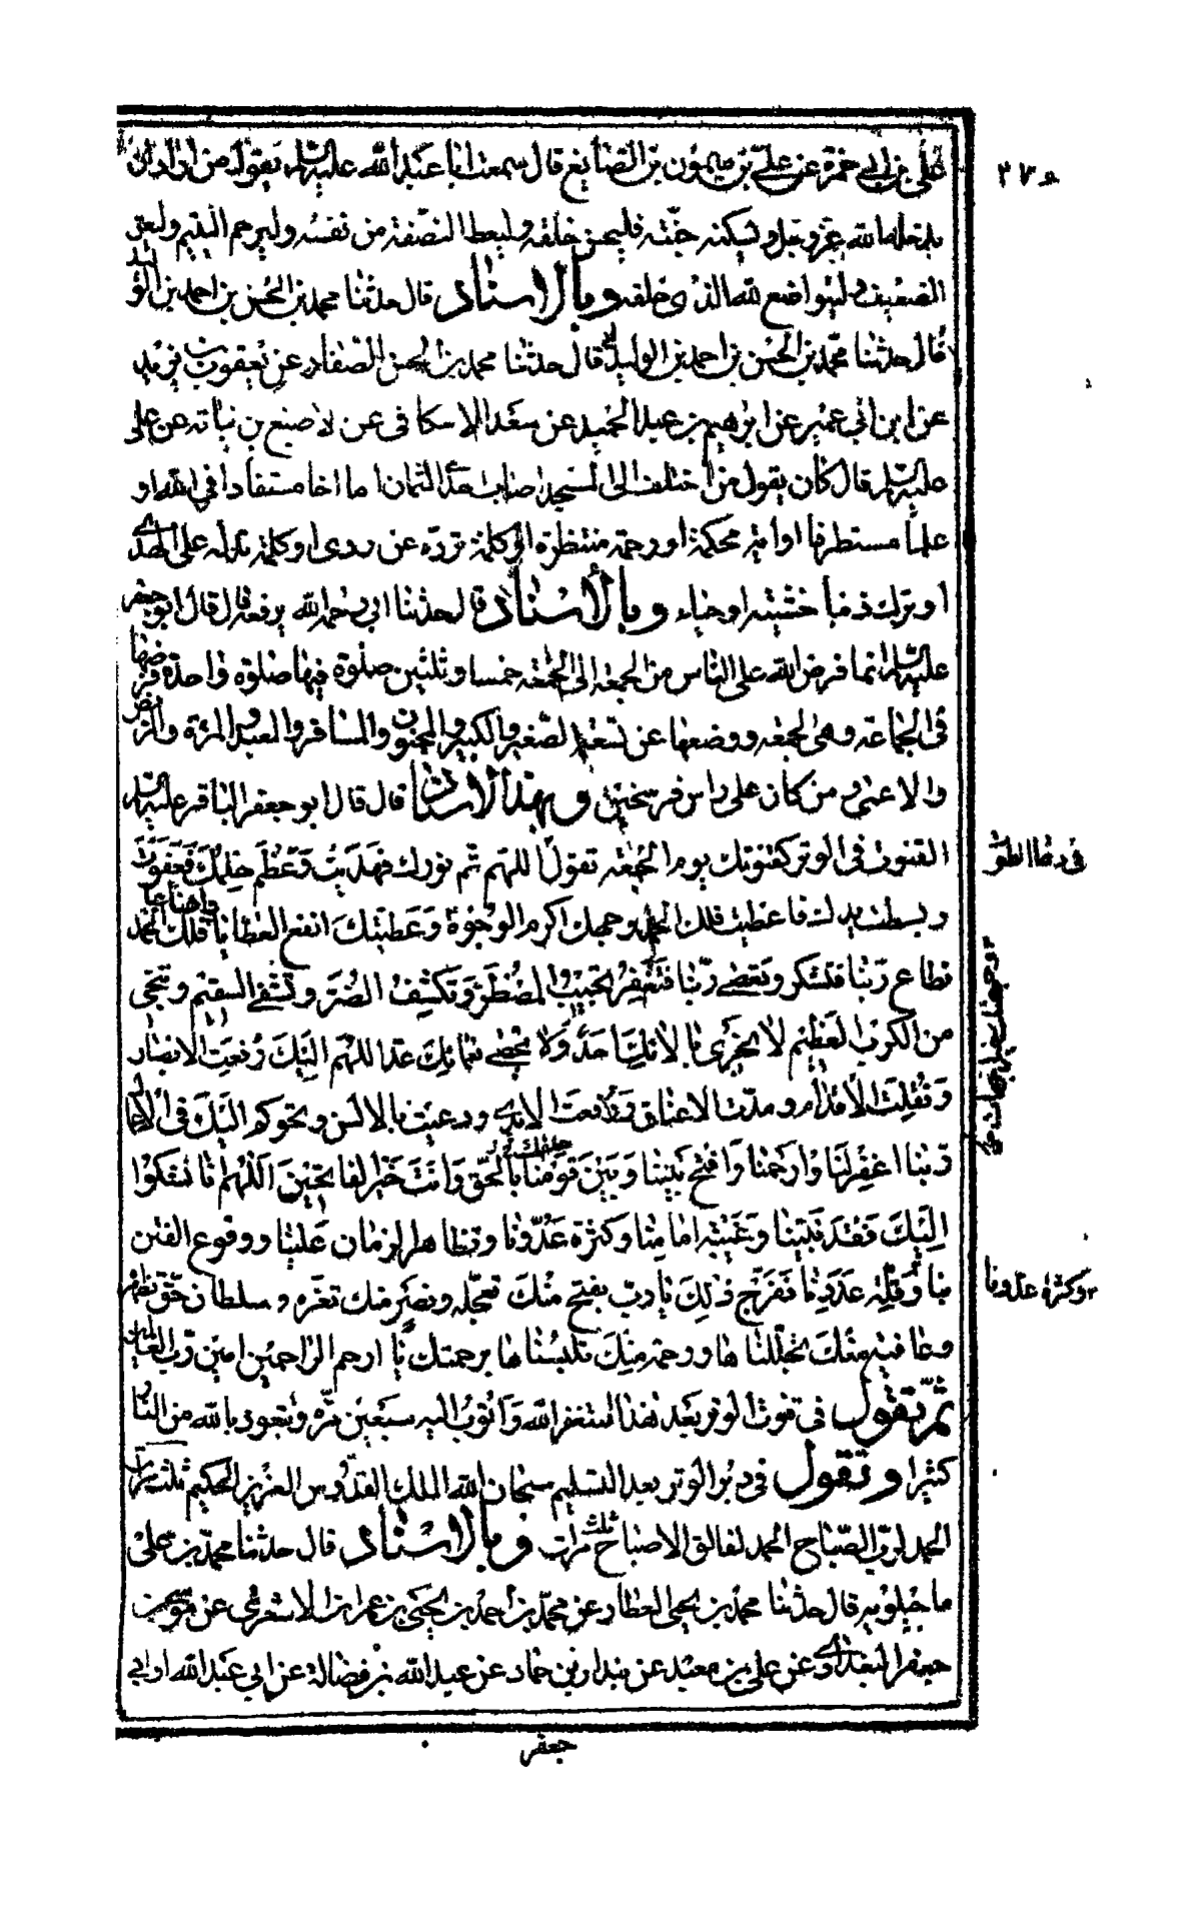 ٣٧٥
علي بن ابي حمزة عن علي بن ميمون بن الصايغ قال سمعت ابا عبد الله عليه السلام يقول من اراد ان
يدخله الله عز وجل ويسكنه جنته فليحسن خلقه وليعط النصفة من نفسه وليرحم اليتيم وليعن
الضعيف وليتواضع لله الذي خلقه وبالاسناد قال حدثنا محمد بن الحسن بن احمد بن الوليد
قال حدثنا محمد بن الحسن بن احمد بن الوليد قال حدثنا محمد بن الحسن الصفار عن يعقوب بن يزيد
عن ابن ابي عمير عن ابرهيم بن عبد الحميد عن سعد الاسكافي عن لاصبغ بن نباته عن علي
عليه السلام قال كان يقول من اختلف الى المسجد اصاب احد الثمان اما اخا مستفادا في الله او
علما مستطرفا او اية محكمة او رحمة منتظرة او كلمة تردّه عن ردى او كلمة تدله على الهدى
او ترك ذنبا خشيته او حياء وبالاسناد قال حدثنا ابي رحمه الله يرفعه قال قال ابو جعفر
عليه السلام انما فرض الله على الناس من الجمعة الى الجمعة خمسا وثلثين صلوة فيها صلوة واحدة فرضها
في الجماعة وهى الجمعة ووضعها عن تسعة الصغير والكبير والمجنون والمسافر والعبد والمرءة والمريض
والاعمى ومن كان على راس فرسخين وبهذا الاسناد قال قال ابو جعفر الباقر عليه السلام
القنوت في الوتر كقنوتك يوم الجمعة تقول اللهم تم نورك فهديت وعظم حلمك فعفوت
في دعاء الوتر
وبسطت يدك فاعطيت فلك الحمد وجهك اكرم الوجوه وعطيتك انفع العطايا واهناها فلك الحمد
تطاع ربنا فتشكر وتعصى ربنا فتغفر تجيب المضطر وتكشف الضر وتشفي السقيم وتنجي
من الكرب العظيم لا يجزى بالائك احد ولا يحصي نعمائك عدا اللهم اليك رفعت الابصار
ونقلت الاقدام ومدت الاعناق ورفعت الايدي ودعيت بالالسن وتحوكم اليك في الاعمال
ربنا اغفر لنا وارحمنا وافتح بيننا وبين قومنا بالحق وانت خير الفاتحين اللهم انا نشكوا
اليك فقد نبينا وغيبة امامنا وكثرة عدونا وتظاهر الزمان علينا ووقوع الفتن
وكثرة عدونا
بنا وقلة عددنا فافرج ذلك يا رب بفتح منك تعجله ونصر منك تعزه وسلطان حق تظهره
وعافية منك تجللنا ها ورحمة منك تلبسنا ها برحمتك يا ارحم الراحمين امين رب العالمين
ثم تقول في قنوت الوتر بعد هذا استغفر الله واتوب اليه سبعين مرة وتعوذ بالله من النار
كثيرا وتقول في دبر الوتر بعد التسليم سبحان الله الملك القدوس العزيز الحكيم ثلث مرات
الحمد لرب الصباح الحمد لفالق الاصباح ثلث مرات وبالاسناد قال حدثنا محمد بن علي
ماجيلويه قال حدثنا محمد بن يحيى العطار عن محمد بن احمد بن يحيى بن عمران الاشعري عن موسى بن
جعفر البغدادي عن علي بن معبد عن بندار بن حماد عن عبد الله بن فضالة عن ابي عبد الله او ابي
جعفر